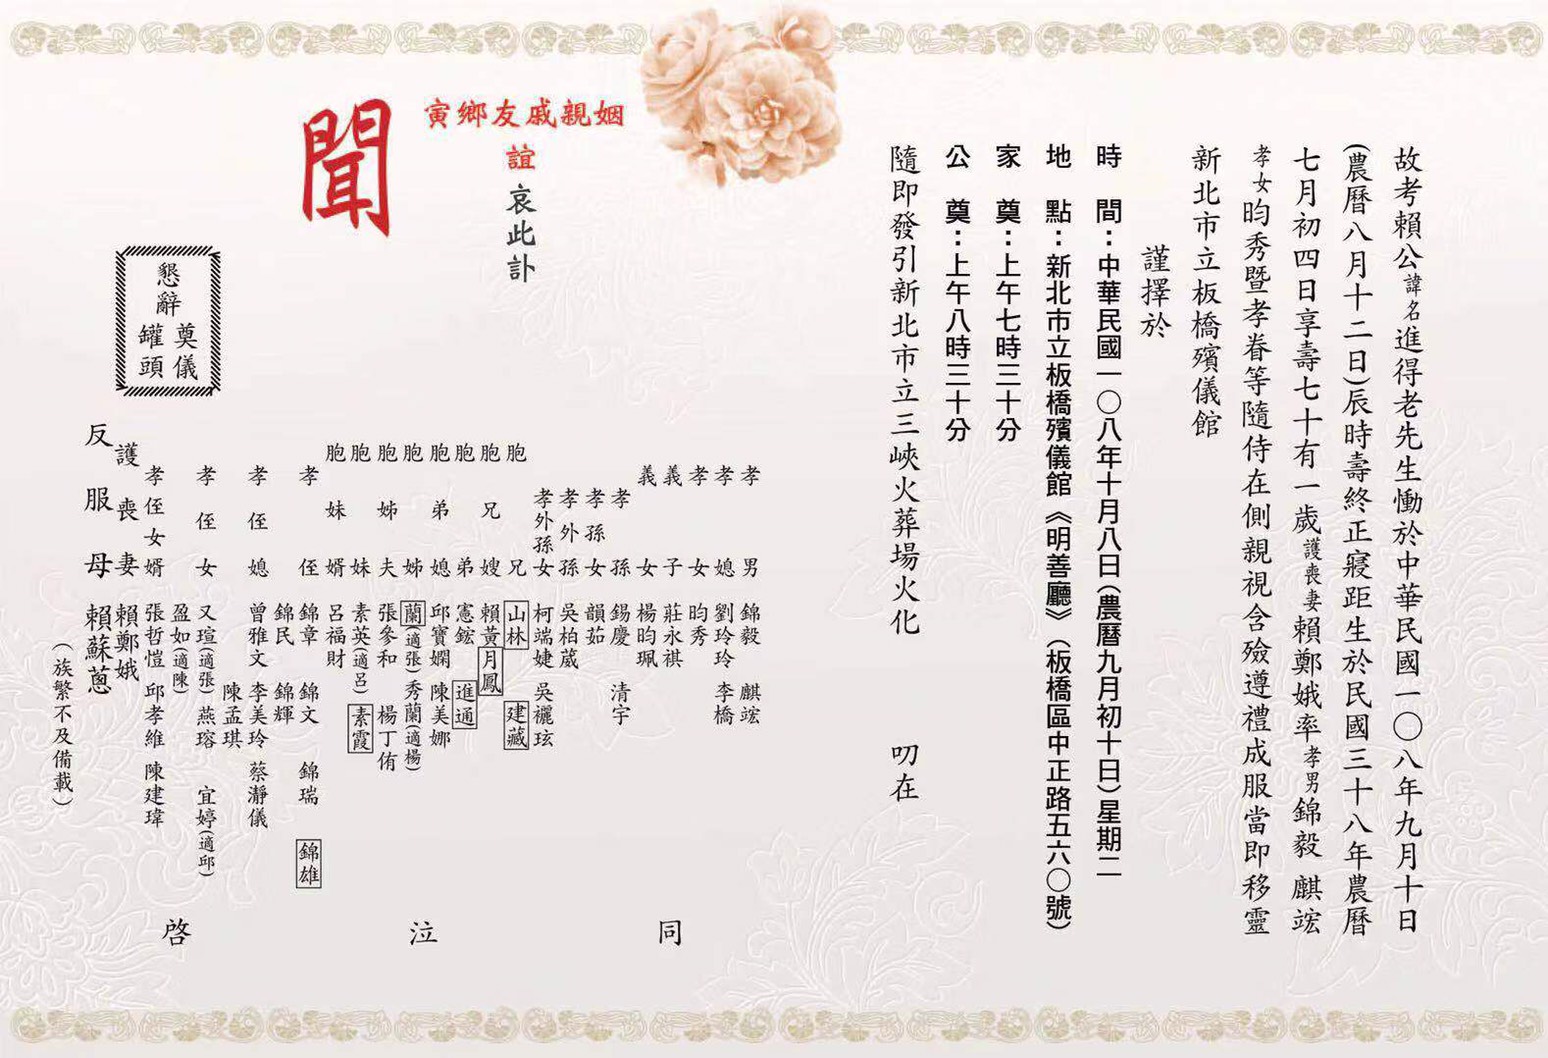 故考賴公諱名進得老先生慟於中華民國一○八年九月十日
(農曆八月十二日)辰時壽終正寢距生於民國三十八年農曆
七月初四日享壽七十有一歲護喪妻賴鄭娥率孝男錦毅 麒竤
孝女昀秀暨孝眷等隨侍在側親視含殮遵禮成服當即移靈
新北市立板橋殯儀館
謹擇於
時 間：中華民國一○八年十月八日(農曆九月初十日)星期二
地 點：新北市立板橋殯儀館《明善廳》(板橋區中正路五六○號)
家 奠：上午七時三十分
公 奠：上午八時三十分
隨即發引新北市立三峽火葬場火化 叨在
姻親戚友鄉寅
誼 哀此訃
聞
懇辭 奠儀 罐頭
孝男 錦毅 麒竤
孝媳 劉玲玲 李橋
孝女 昀秀
義子 莊永祺
義女 楊昀珮
孝孫 錫慶 清宇
孝孫女 韻茹
孝外孫 吳柏葳
孝外孫女 柯端婕 吳襹玹
胞兄 山林 建藏
胞兄嫂 賴黃月鳳
胞弟 憲鋐 進通
胞弟媳 邱寶嫻 陳美娜
胞姊 蘭(適張) 秀蘭(適楊)
胞姊夫 張參和 楊丁侑
胞妹 素英(適呂) 素霞
胞妹婿 呂福財
孝侄 錦章 錦文 錦瑞 錦雄
錦民 錦輝
孝侄媳 曾雅文 李美玲 蔡瀞儀
陳孟琪
孝侄女 又瑄(適張) 燕瑢 宜婷(適邱)
盈如(適陳)
孝侄女婿 張哲愷 邱孝維 陳建瑋
護喪妻 賴鄭娥
反服母 賴蘇蔥
(族繁不及備載)
同 泣 啓